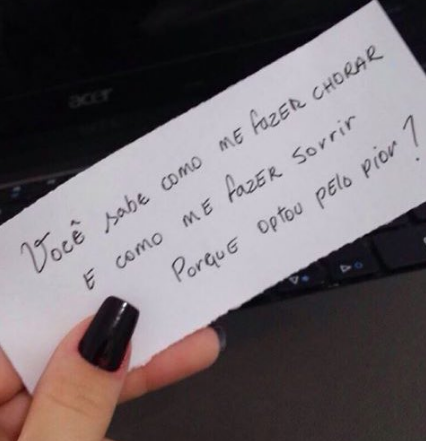 acer
Você sabe como ME fazER CHORAR
E como ME fazER Sorrir
Porque optou pelo pior?